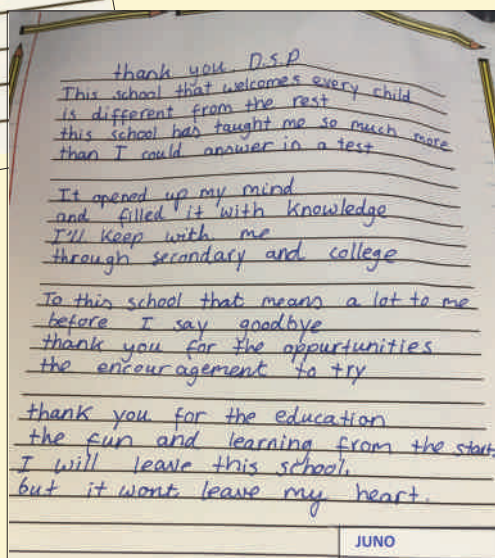 thank you D.S.P
This school that welcomes every child
is different from the rest
this school has taught me so much more
than I could answer in a test
It opened up my mind
and filled it with knowledge
I'll keep with me
through secondary and college
To this school that means a lot to me
before I say goodbye
thank you for the oppurtunities
the encouragement to try
thank you for the education
the fun and learning from the start.
I will leave this school.
but it wont leave my heart.
JUNO